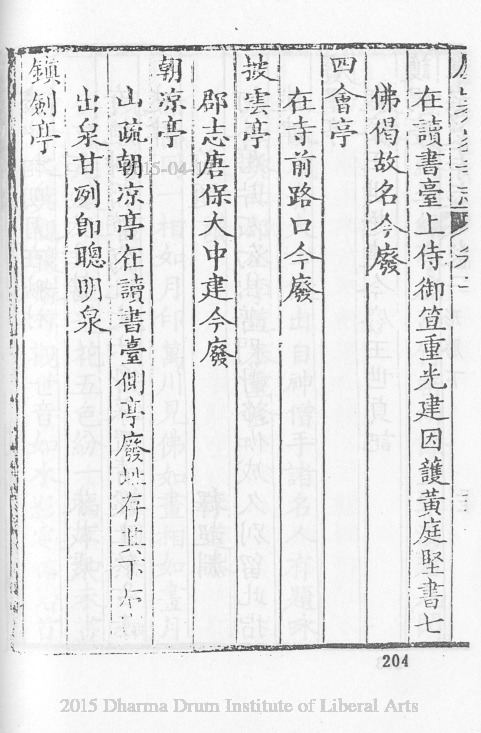 在讀書臺上侍御笪重光建因護黃庭堅書七
佛偈故名今廢
四會亭
在寺前路口今廢
披雲亭
郡志唐保大中建今廢
朝凉亭
山疏朝凉亭在讀書臺側亭廢址存其下石
出泉甘冽即聰明泉
鎮劍亭
204
2015 Dharma Drum Institute of Liberal Arts